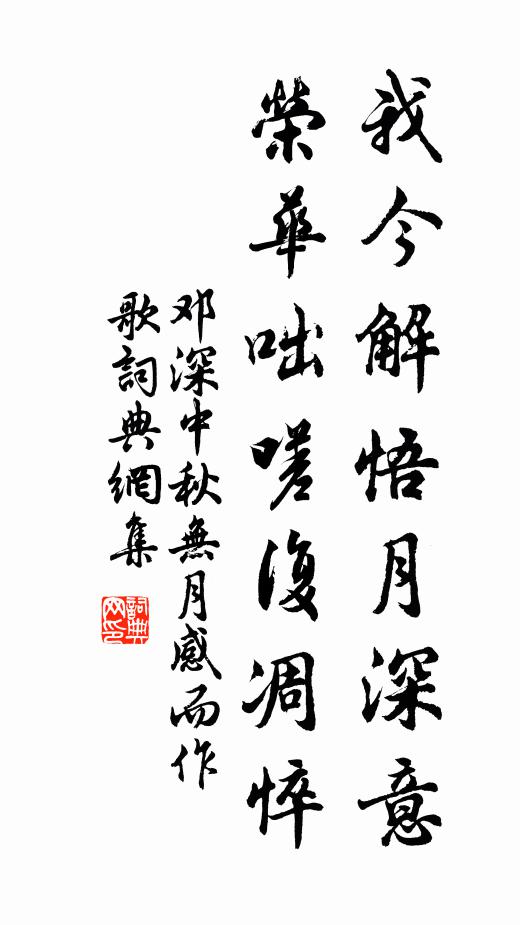 我今解悟月深意
榮華咄嗟復凋悴
邓深中秋無月感而作
歌詞典網集
詞典
网印